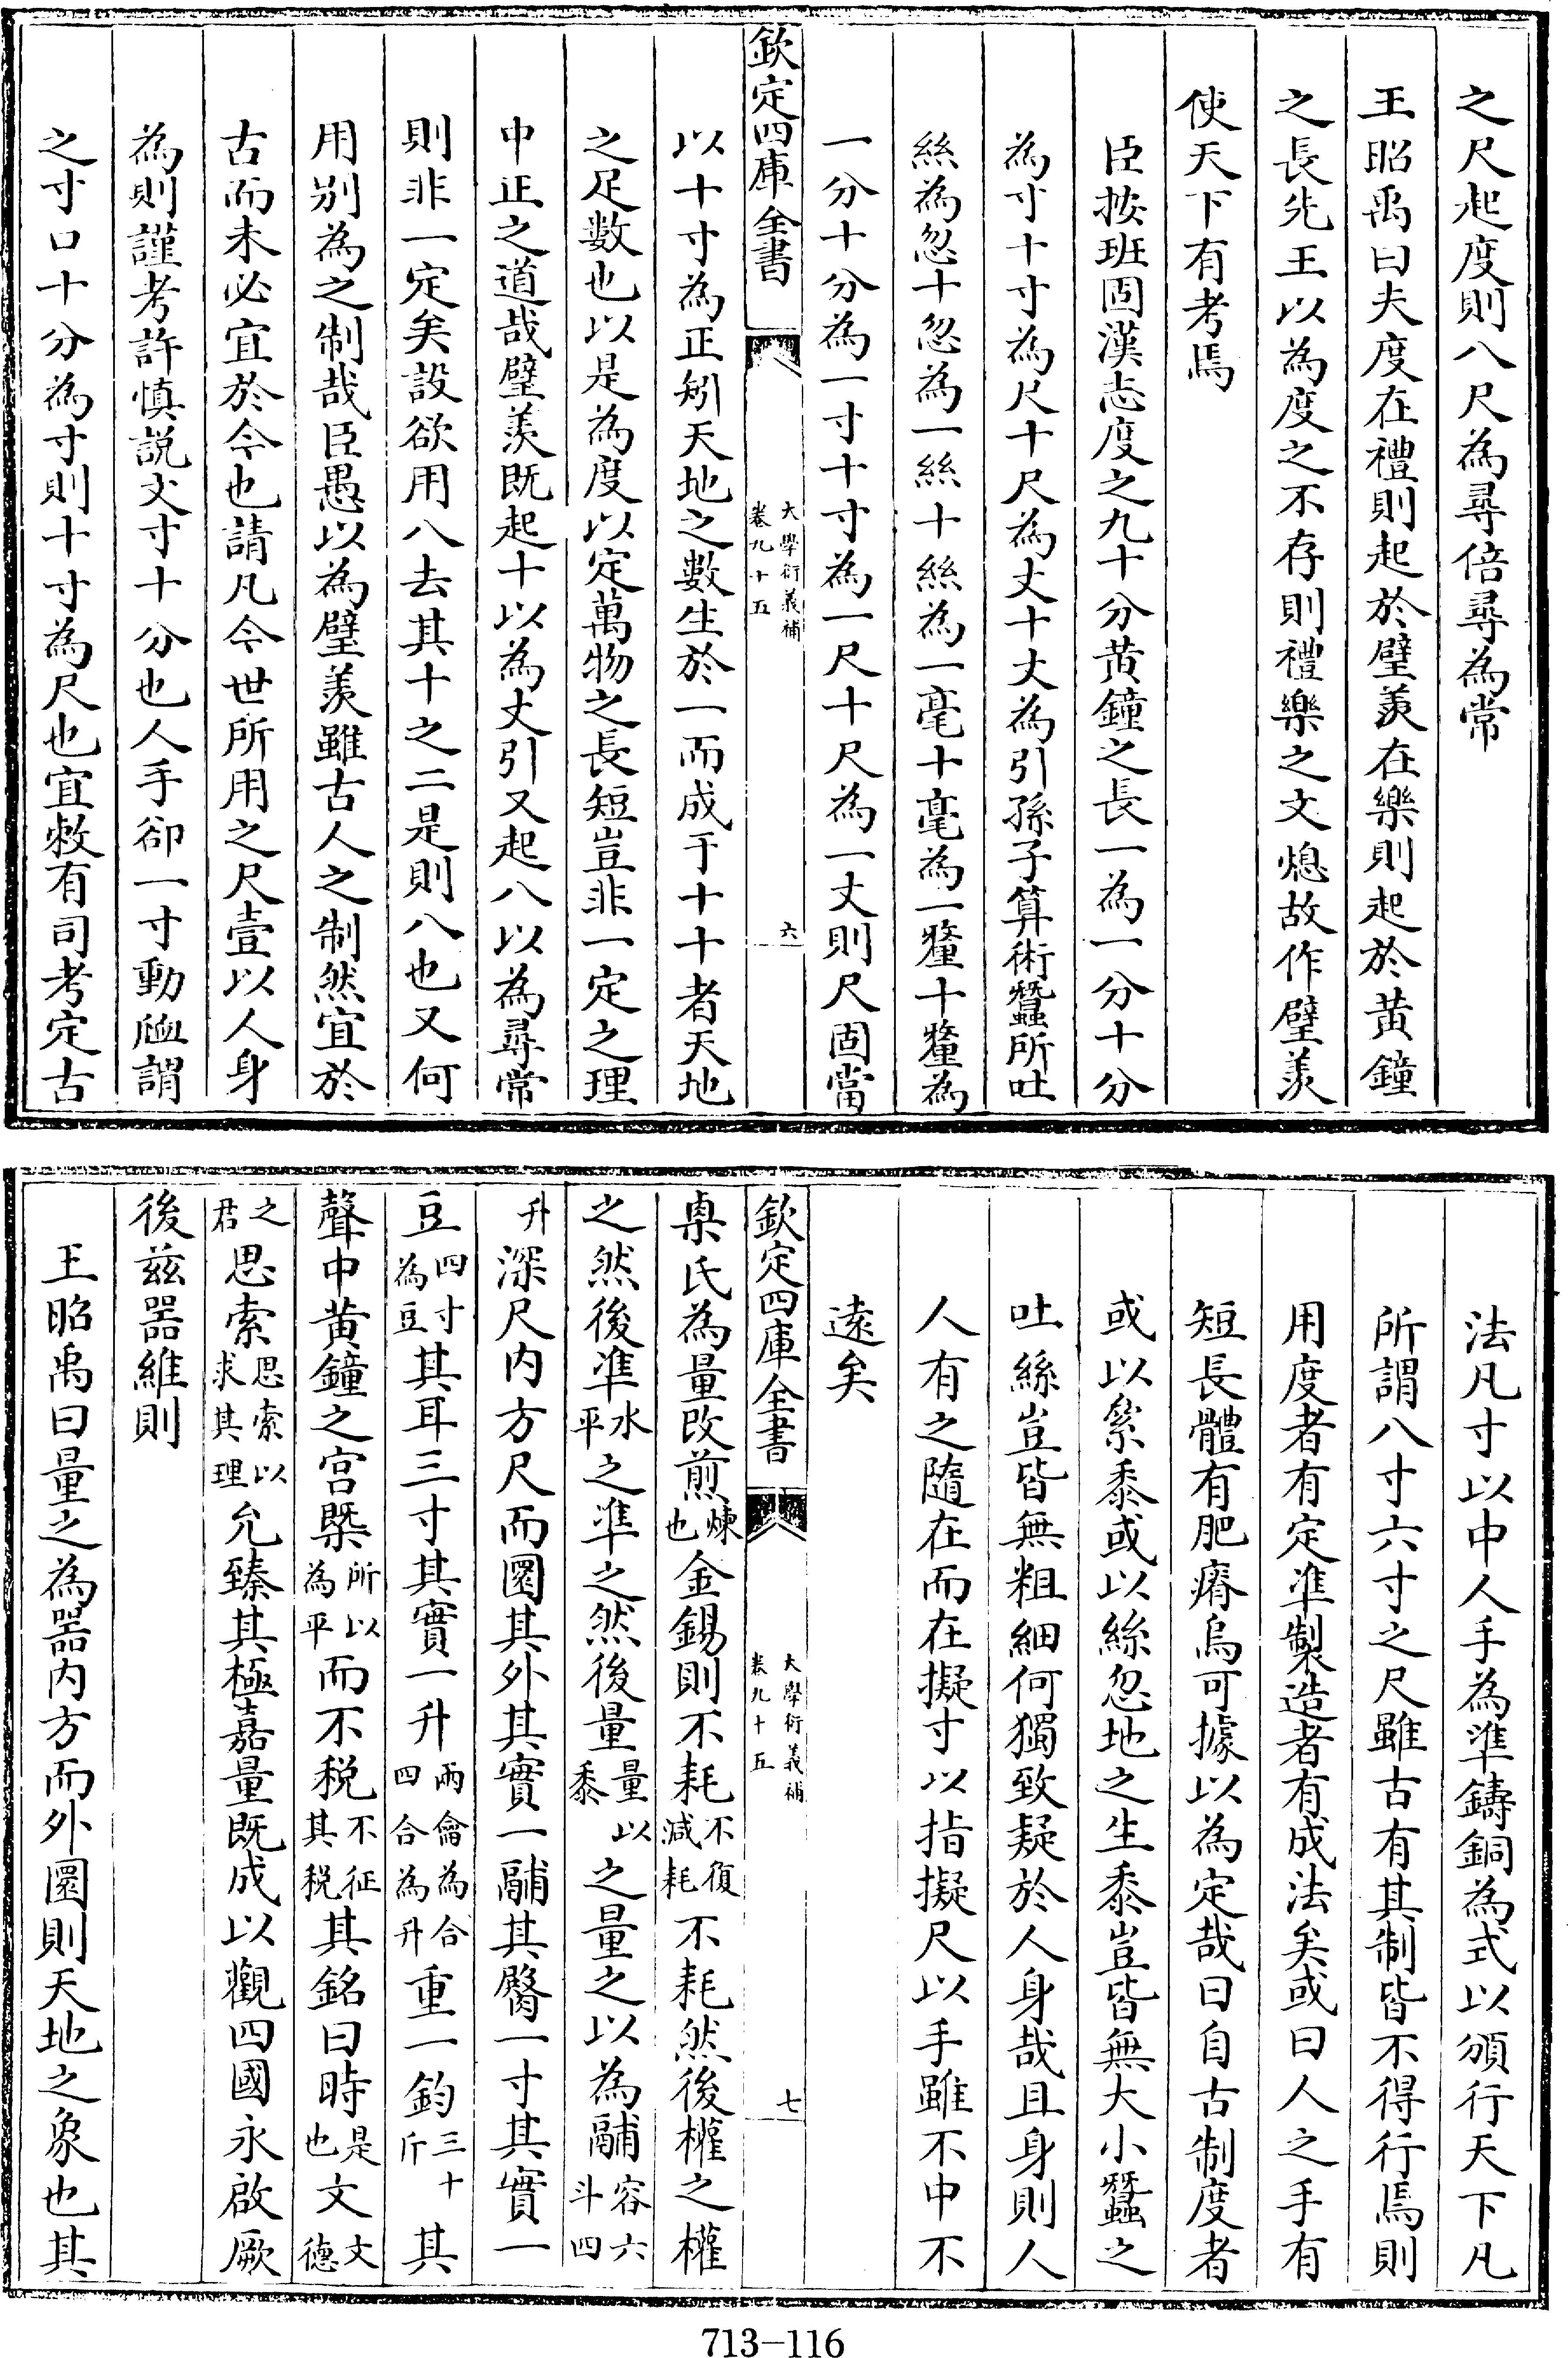 之尺起度則八尺為尋倍尋為常
王昭禹曰夫度在禮則起於璧羨在樂則起於黃鐘
之長先王以為度之不存則禮樂之文熄故作璧羨
使天下有考焉
臣按班固漢志度之九十分黄鐘之長一為一分十分
為寸十寸為尺十尺為丈十丈為引孫子算術蠶所吐
絲為忽十忽為一絲十絲為一毫十毫為一釐十釐為
一分十分為一寸十寸為一尺十尺為一丈則尺固當
欽定四庫全書
大學衍義補
卷九十五
六
以十寸為正矧天地之數生於一而成于十十者天地
之足數也以是為度以定萬物之長短豈非一定之理
中正之道哉璧羨既起十以為丈引又起八以為尋常
則非一定矣設欲用八去其十之二是則八也又何
用别為之制哉臣愚以為璧羨雖古人之制然宜於
古而未必宜於今也請凡今世所用之尺壹以人身
為則謹考許慎説文寸十分也人手卻一寸動䘑謂
之寸口十分為寸則十寸為尺也宜敕有司考定古
法凡寸以中人手為準鑄銅為式以頒行天下凡
所謂八寸六寸之尺雖古有其制皆不得行焉則
用度者有定準製造者有成法矣或曰人之手有
短長體有肥瘠烏可據以為定哉曰自古制度者
或以絫黍或以絲忽地之生黍豈皆無大小蠶之
吐絲豈皆無粗細何獨致疑於人身哉且身則人
人有之隨在而在擬寸以指擬尺以手雖不中不
遠矣
欽定四庫全書
大學衍義補
卷九十五
七
㮚氏為量改煎煉也金錫則不耗不復減耗不耗然後權之權
之然後準水平之準之然後量量以黍之量之以為鬴容六斗四
升深尺内方尺而圜其外其實一鬴其臋一寸其實一
豆四寸為豆其耳三寸其實一升兩龠為合四合為升重一鈞三十斤其
聲中黄鐘之宫㮣所以為平而不税不征其税其銘曰時是也文文德
之君思索思索以求其理允臻其極嘉量既成以觀四國永啟厥
後兹器維則
王昭禹曰量之為器内方而外圜則天地之象也其
713-116